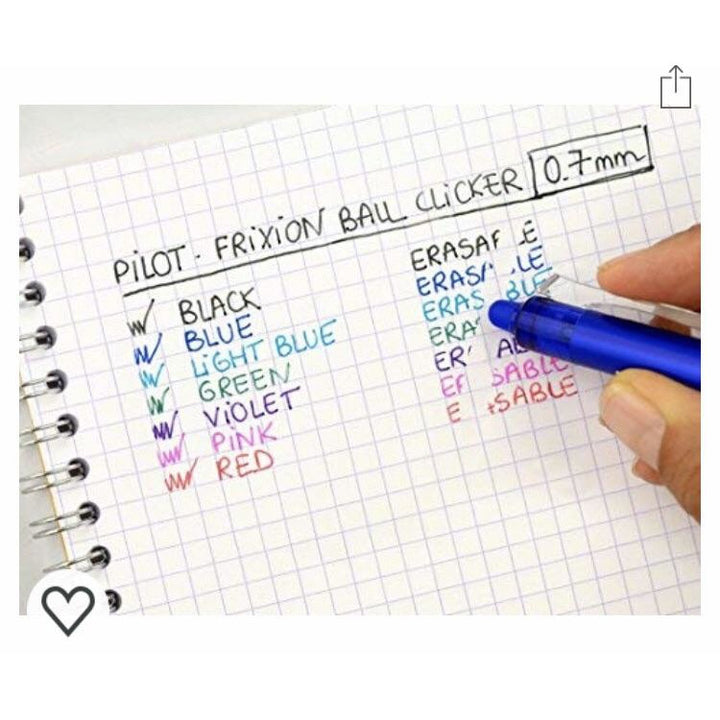 PiLOT - FRiXiON BALL CLiCKER 0.7mm
BLACK
BLUE
LiGHT BLUE
GREEN
ViOLET
PiNK
RED
ERASAF E
ERAS LE
ERAS BLE
ERA
ER AB
EF SABLE
E SABLE